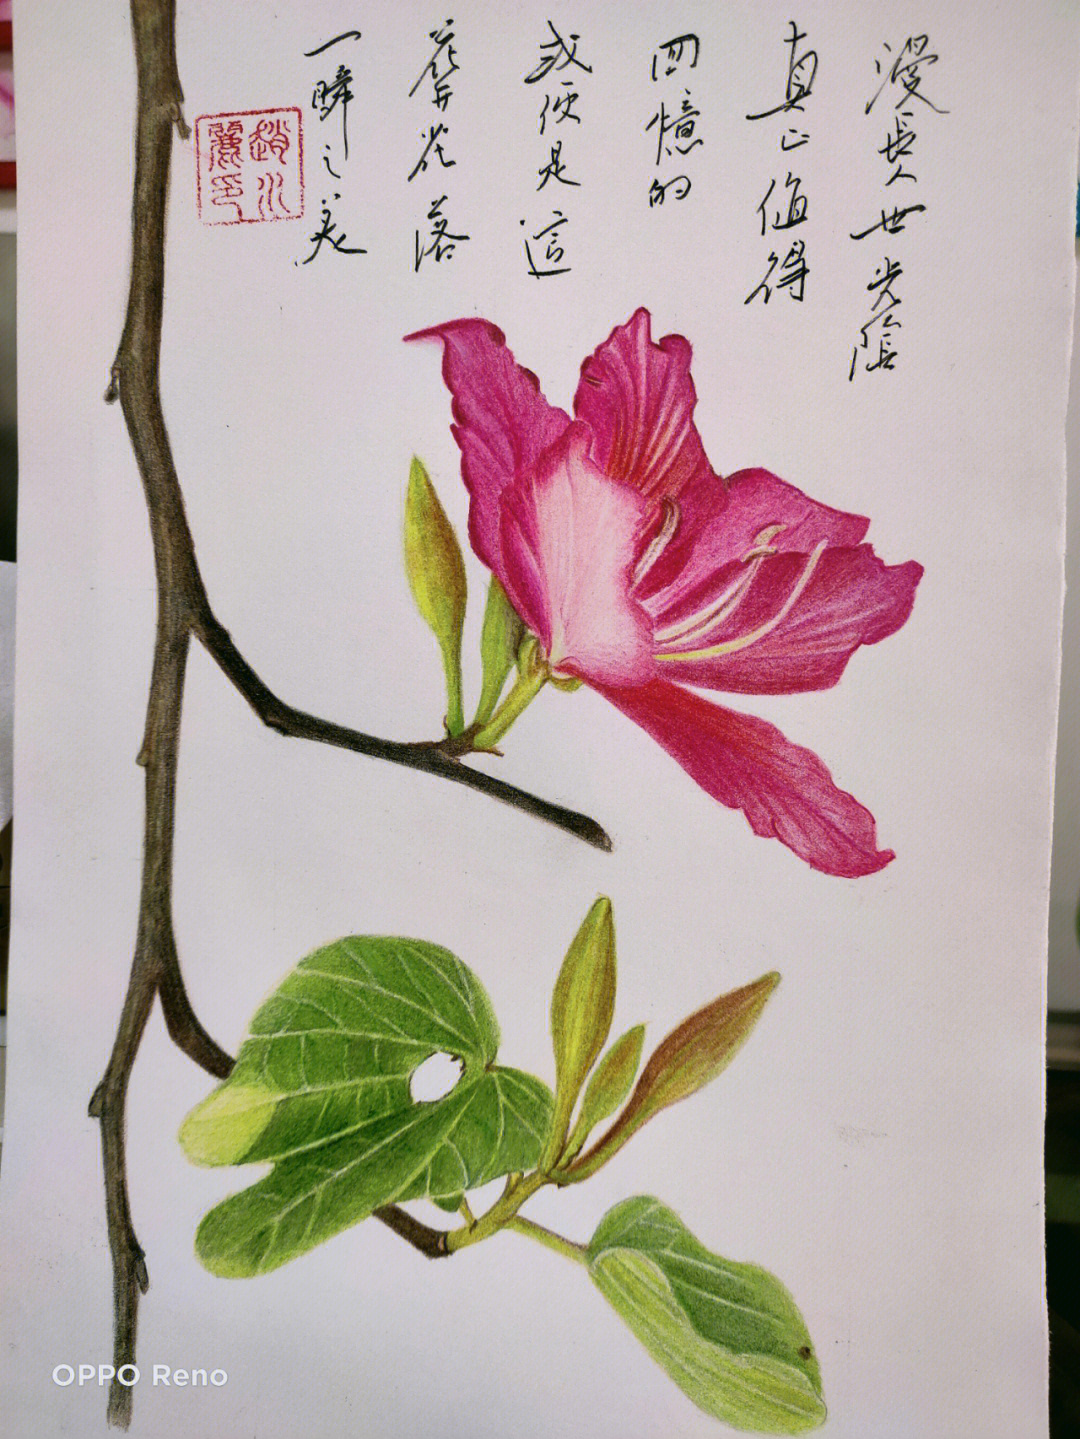 漫長人世光陰
真正值得
回憶的
或便是這
花開花落
一瞬之美
趙小麗印
OPPO Reno